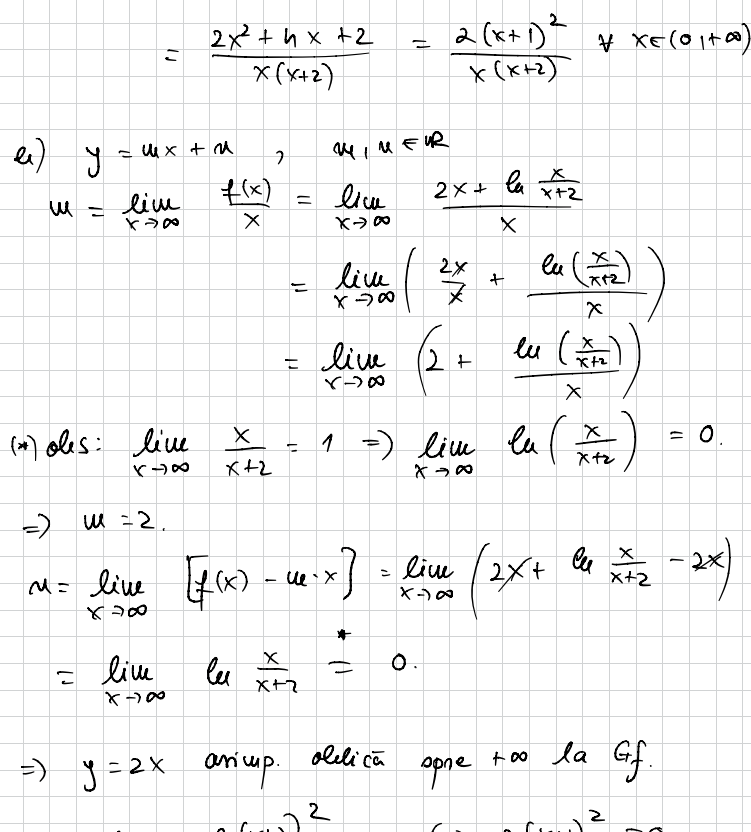 = \frac{2x^2 + 4x + 2}{x(x+2)} = \frac{2(x+1)^2}{x(x+2)} ∀ x ∈ (0, +∞)
b) y = mx + n , m, n ∈ ℝ
m = \lim_{x→∞} \frac{f(x)}{x} = \lim_{x→∞} \frac{2x + \ln \frac{x}{x+2}}{x}
= \lim_{x→∞} ( \frac{2x}{x} + \frac{\ln(\frac{x}{x+2})}{x} )
= \lim_{x→∞} ( 2 + \frac{\ln(\frac{x}{x+2})}{x} )
(*) obs: \lim_{x→∞} \frac{x}{x+2} = 1 ⇒ \lim_{x→∞} \ln(\frac{x}{x+2}) = 0.
⇒ m = 2.
n = \lim_{x→∞} [f(x) - m·x] = \lim_{x→∞} ( 2x + \ln \frac{x}{x+2} - 2x )
= \lim_{x→∞} \ln \frac{x}{x+2} \overset{*}{=} 0.
⇒ y = 2x asimp. oblică spre +∞ la Gf.